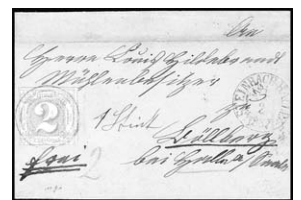 An
Herrn Louis Hildebrandt
Mühlenbesitzer
in
2
1 Stück
Böllberg
frei
2
bei Halle a/Saale